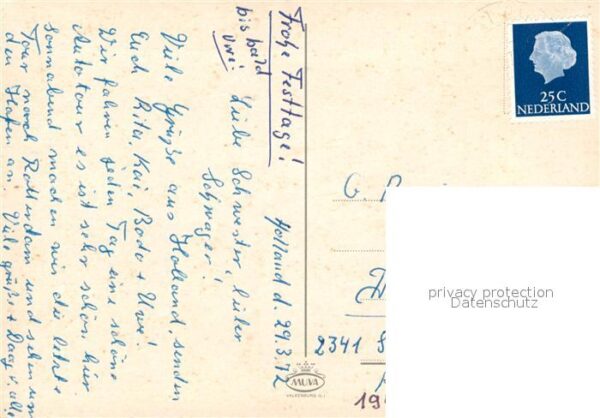 Holland d. 29.3.72
Liebe Schwester, lieber
Schwager!
Viele Grüße aus Holland senden
Euch Rita, Kai, Bodo + Uwe!
Wir fahren jeden Tag eine schöne
Autotour es ist sehr schön hier
Sonnabend machen wir die letzte
Tour nach Rotterdam und sehen uns
den Hafen an. Viele grüße + Daag v. alle
bis bald
Uwe!
Frohe Festtage!
25 C
NEDERLAND
privacy protection
Datenschutz
2341
MUVA
VALKENBURG (L.)